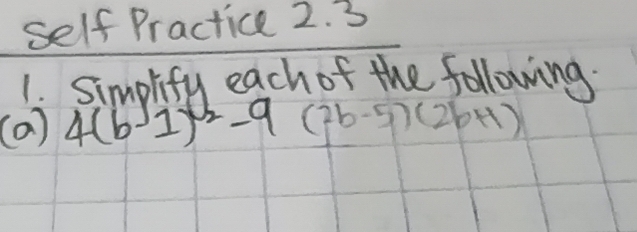 Self Practice 2.3
1. Simplify each of the following.
(a) 4(b-1)² -9 (2b-5)(2b+1)